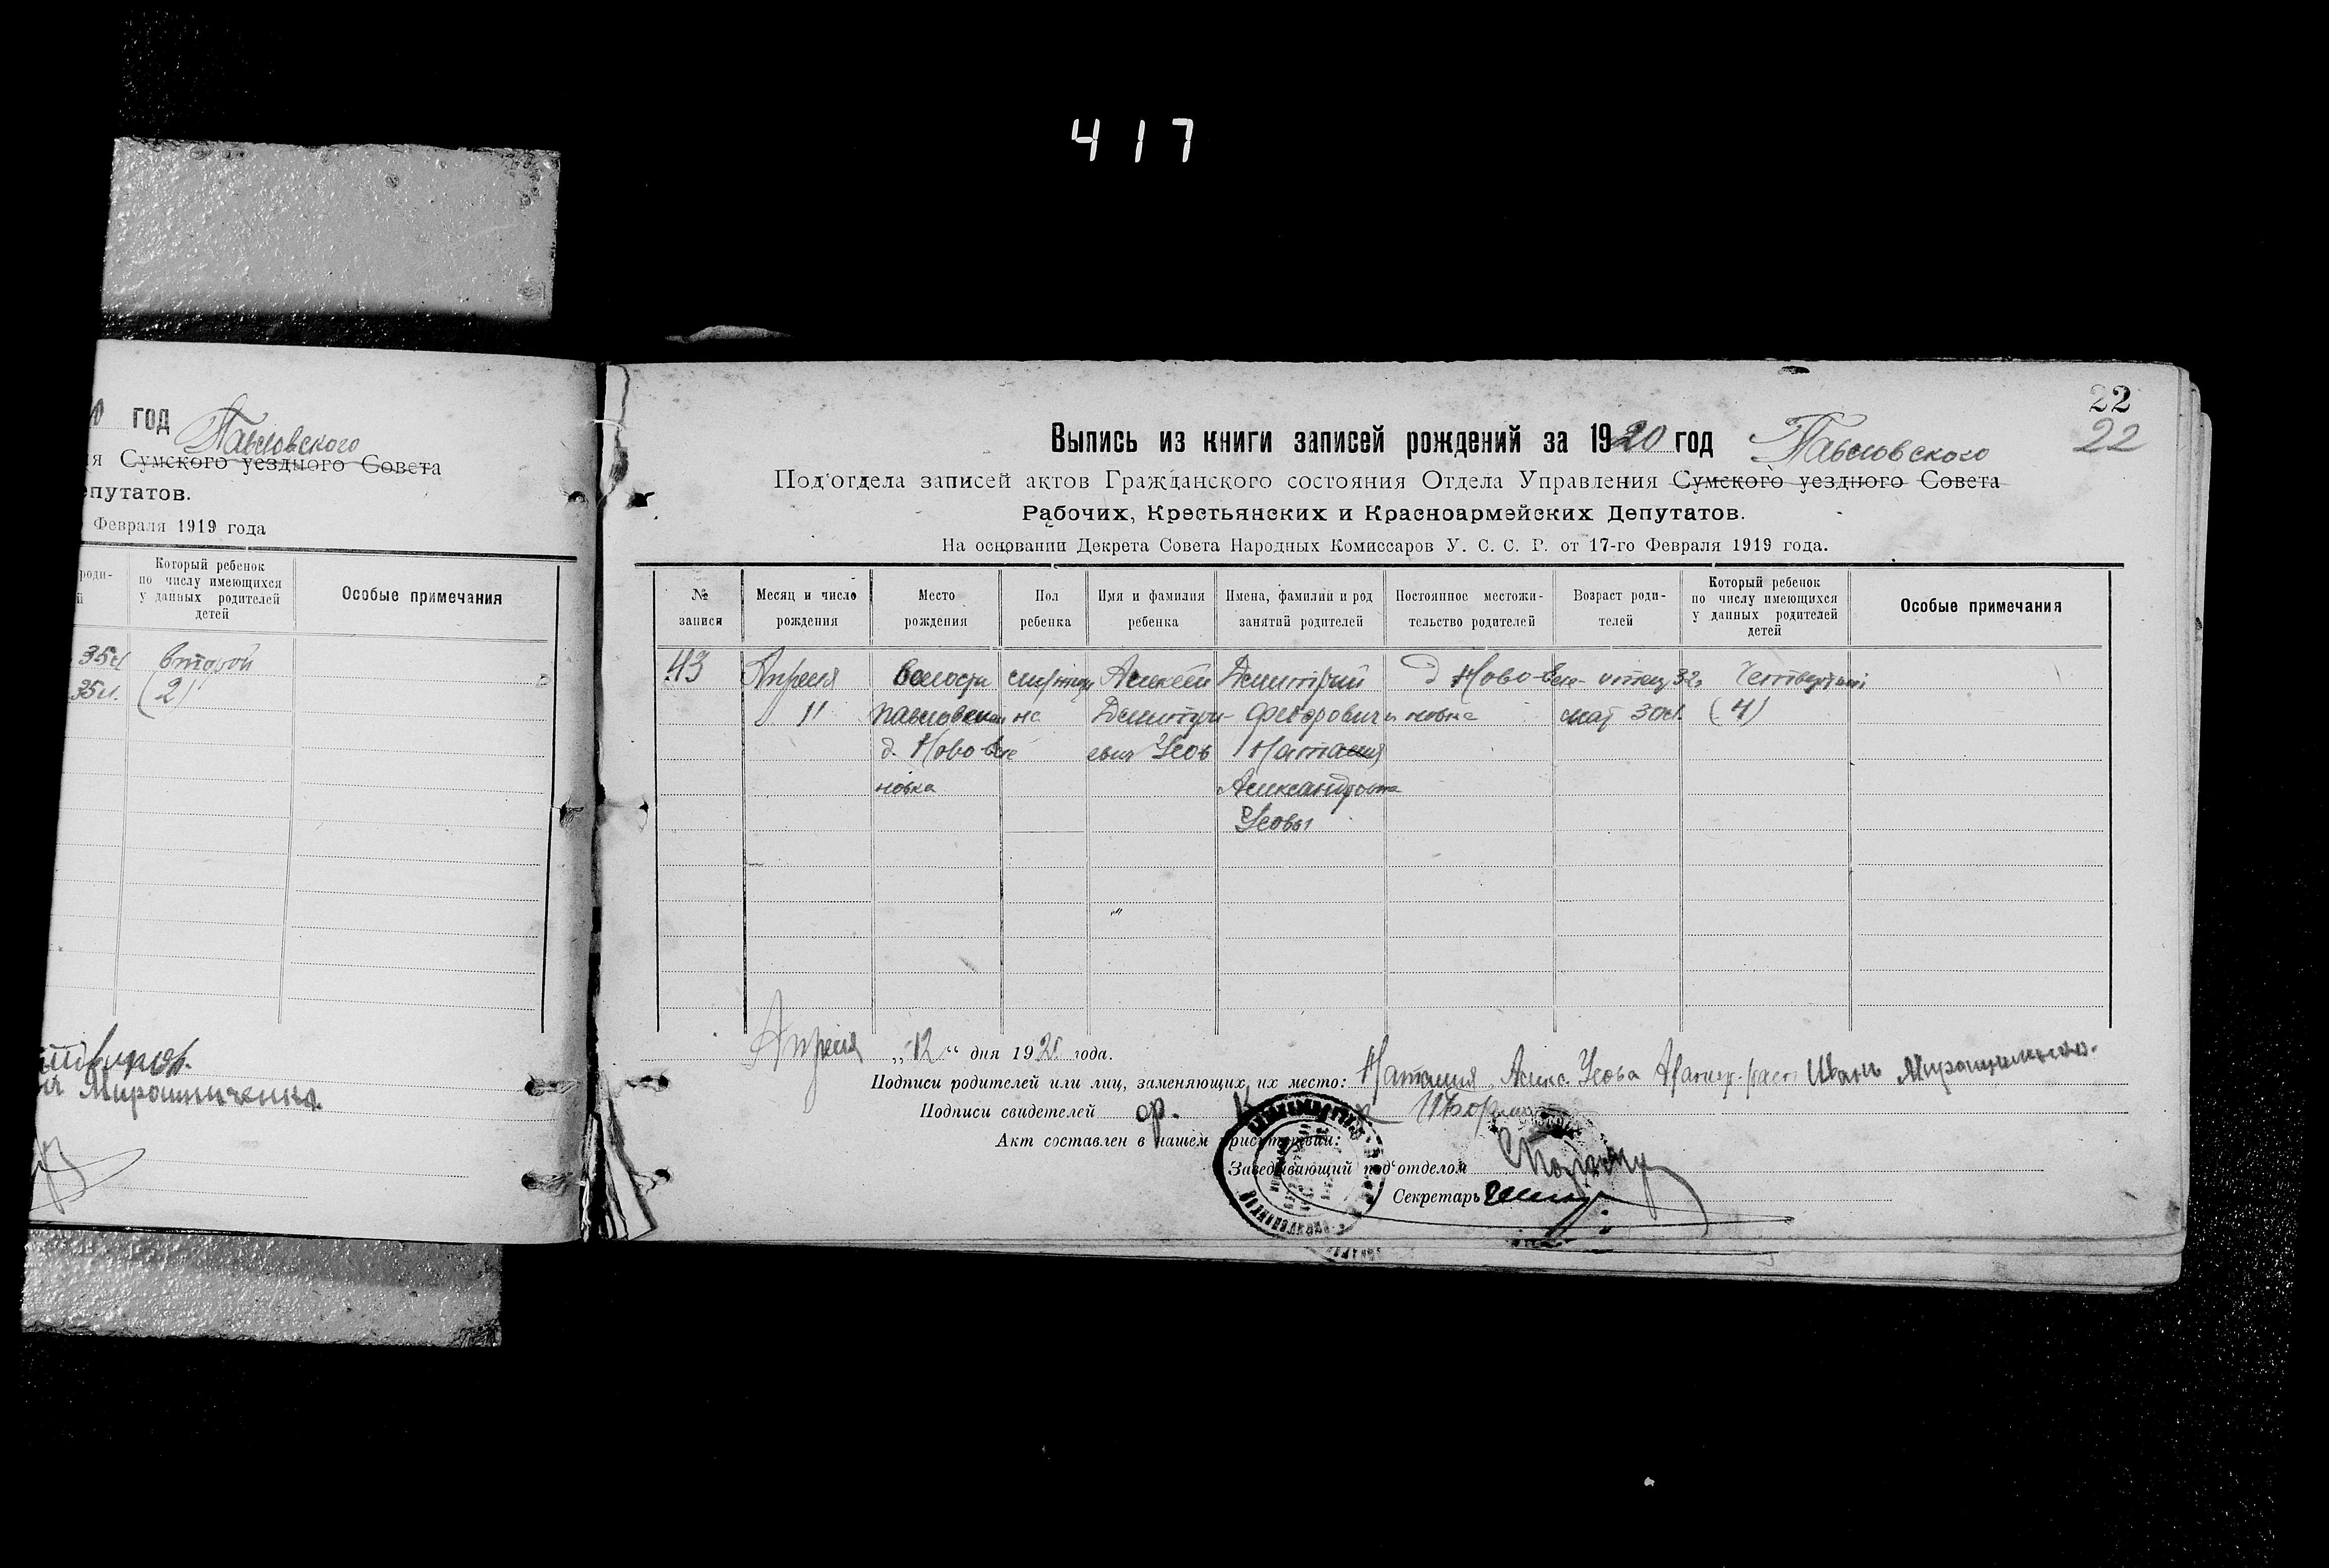 417
год Павловского
я Сумского уездного Совета
епутатов.
Февраля 1919 года
роди-
й
Который ребенок
по числу имеющихся
у данных родителей
детей
Особые примечания
35л второй
35л. (2)
Мирошниченко
22
22
Выпись из книги записей рождений за 1920 год Павловского
Под'отдела записей актов Гражданского состояния Отдела Управления Сумского уездного Совета
Рабочих, Крестьянских и Красноармейских Депутатов.
На основании Декрета Совета Народных Комиссаров У. С. С. Р. от 17-го Февраля 1919 года.
№
записи
Месяц и число
рождения
Место
рождения
Пол
ребенка
Имя и фамилия
ребенка
Имена, фамилии и род
занятий родителей
Постоянное местожи-
тельство родителей
Возраст роди-
телей
Который ребенок
по числу имеющихся
у данных родителей
детей
Особые примечания
43 Апреля волость Алексей Димитрий д Ново-Селе- отец 32 Четвертый
11 Павловская на Димитри- Феодорович новка мат 30л. (4)
д. Ново-Селе евич Усов Наталия
новка Александровна
Усовы
Апреля „12“ дня 1920 года.
Подписи родителей или лиц, заменяющих их место: Наталия Алекс. Усова Иван Мирошниченко.
Подписи свидетелей
Акт составлен в нашем присутствии:
Заведывающий под'отделом
Секретарь